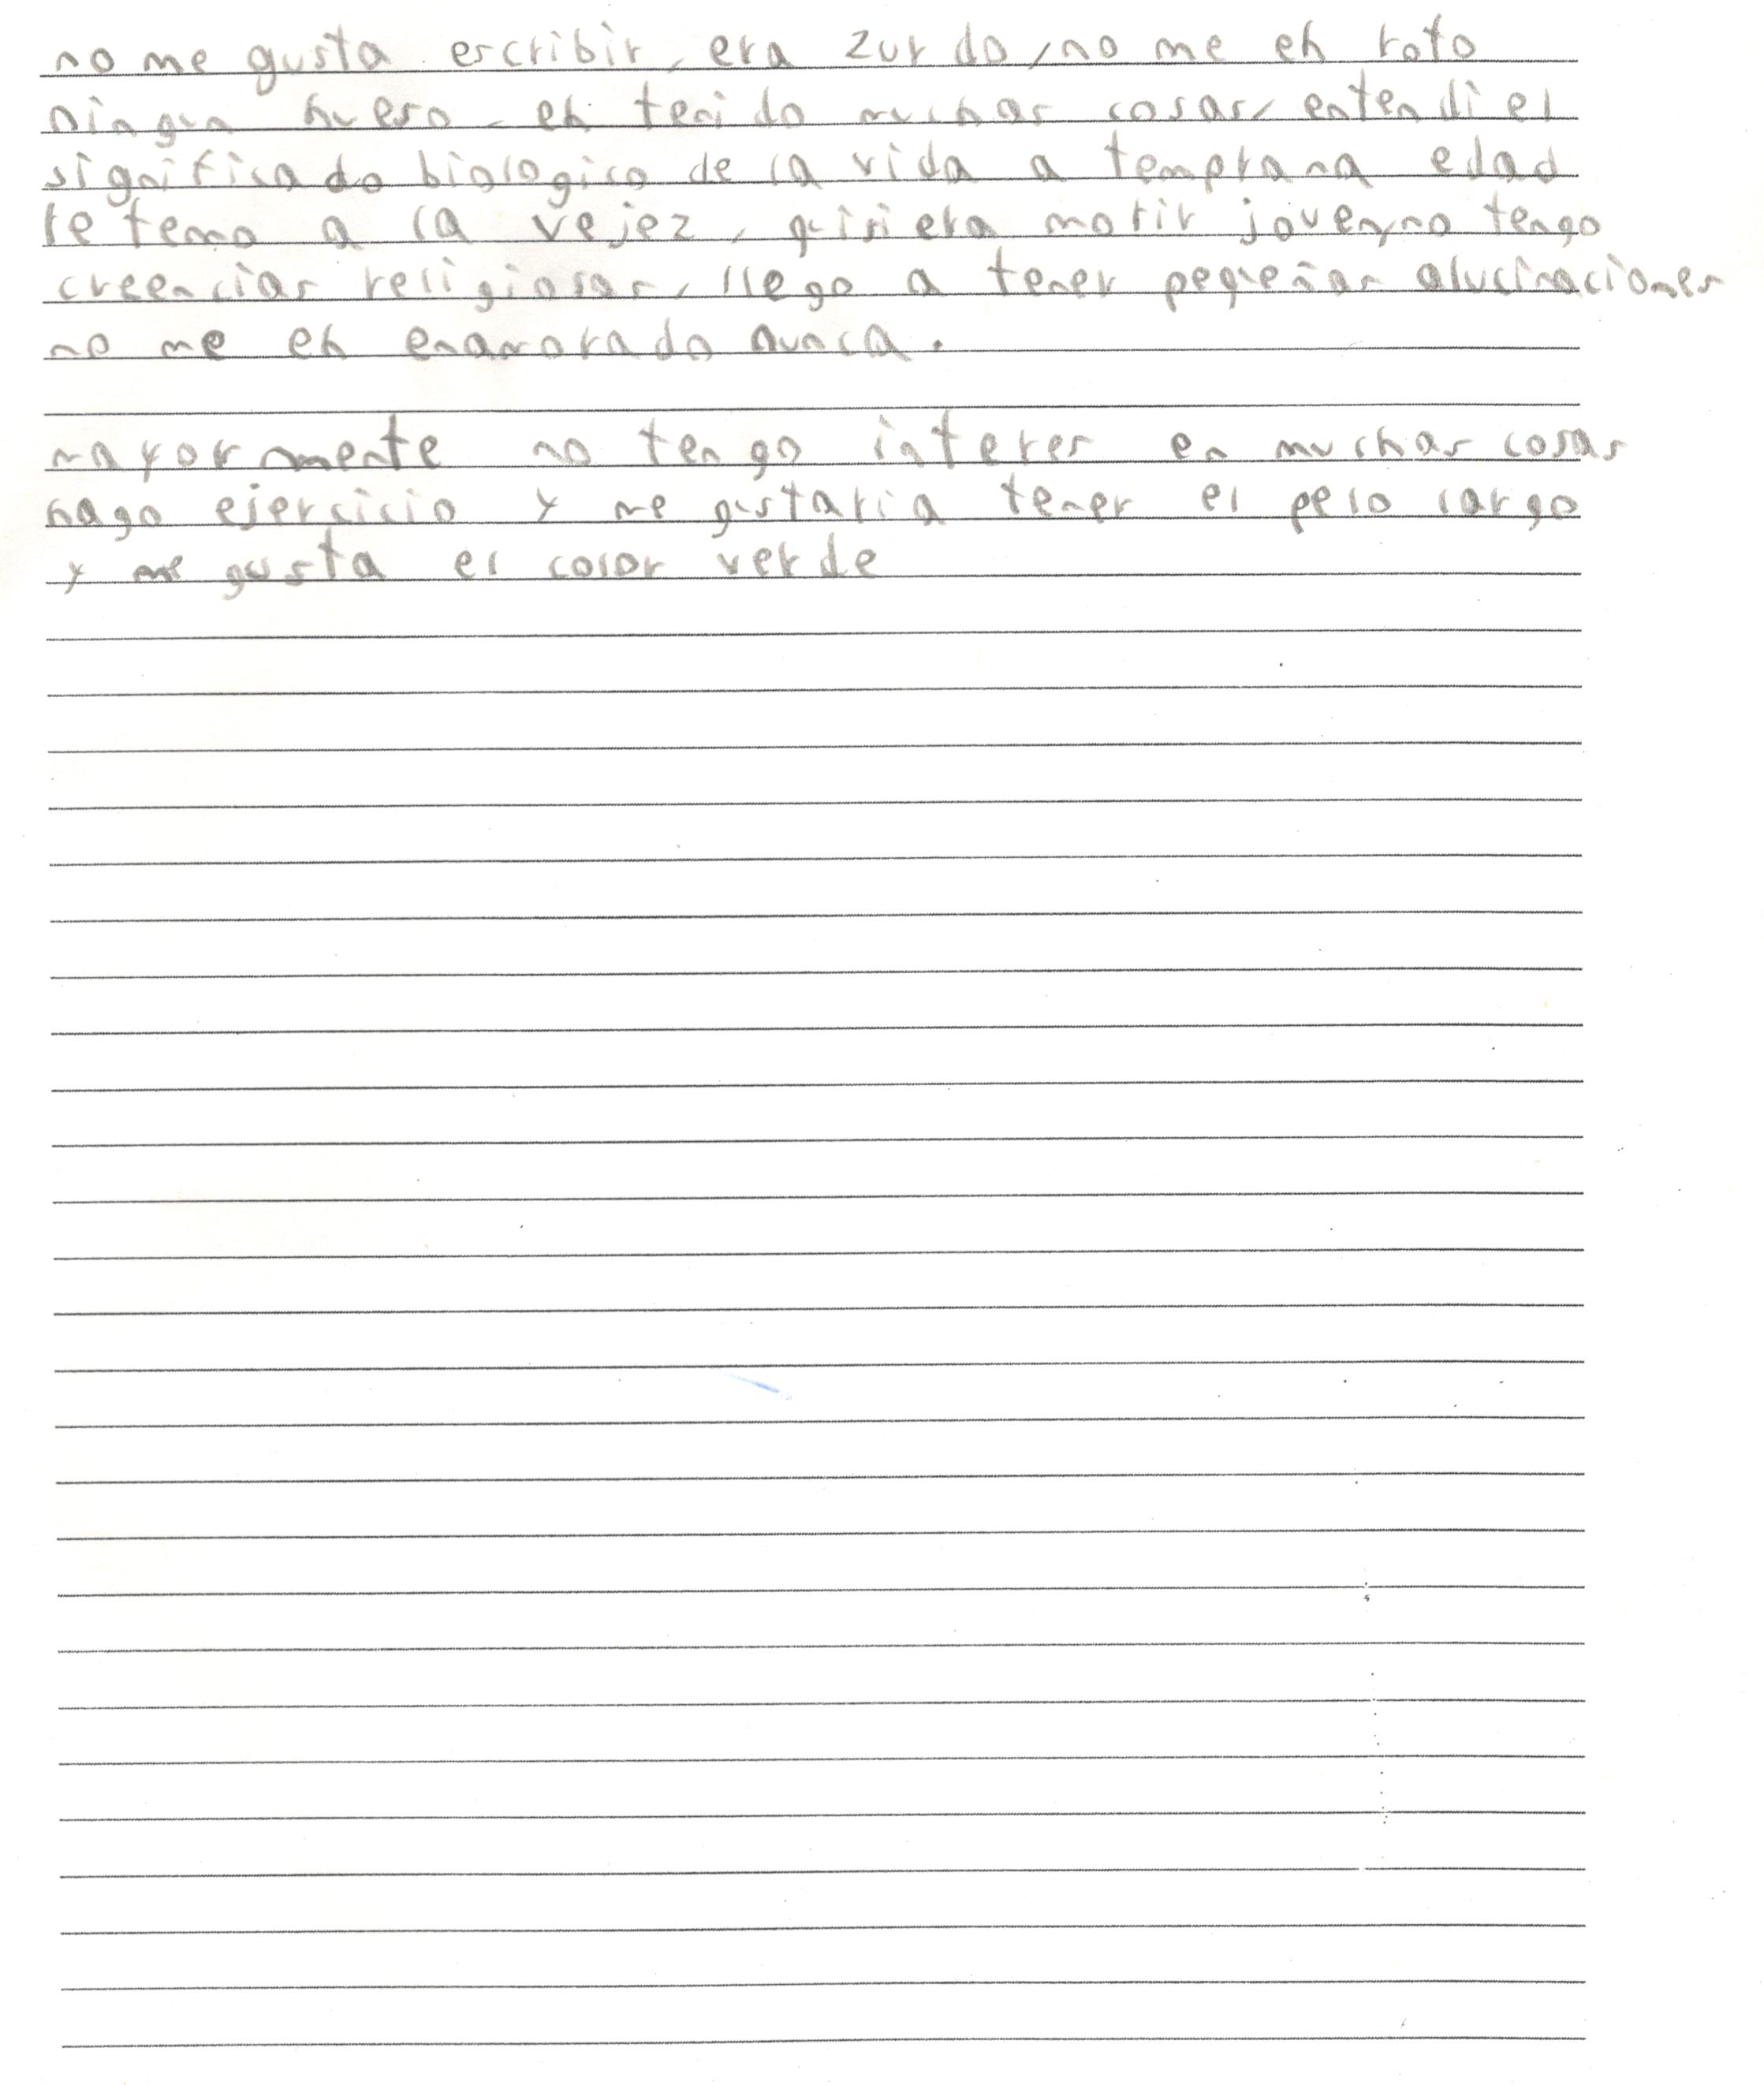 no me gusta escribir, era zurdo, no me eh roto
ningun hueso, eh tenido muchas cosas, entendi el
significado biologico de la vida a temprana edad
le temo a la vejez, quisiera morir joven, no tengo
creencias religiosas, llego a tener pequeñas alucinaciones
no me eh enamorado nunca.
mayormente no tengo interes en muchas cosas
hago ejercicio y me gustaria tener el pelo largo
y me gusta el color verde